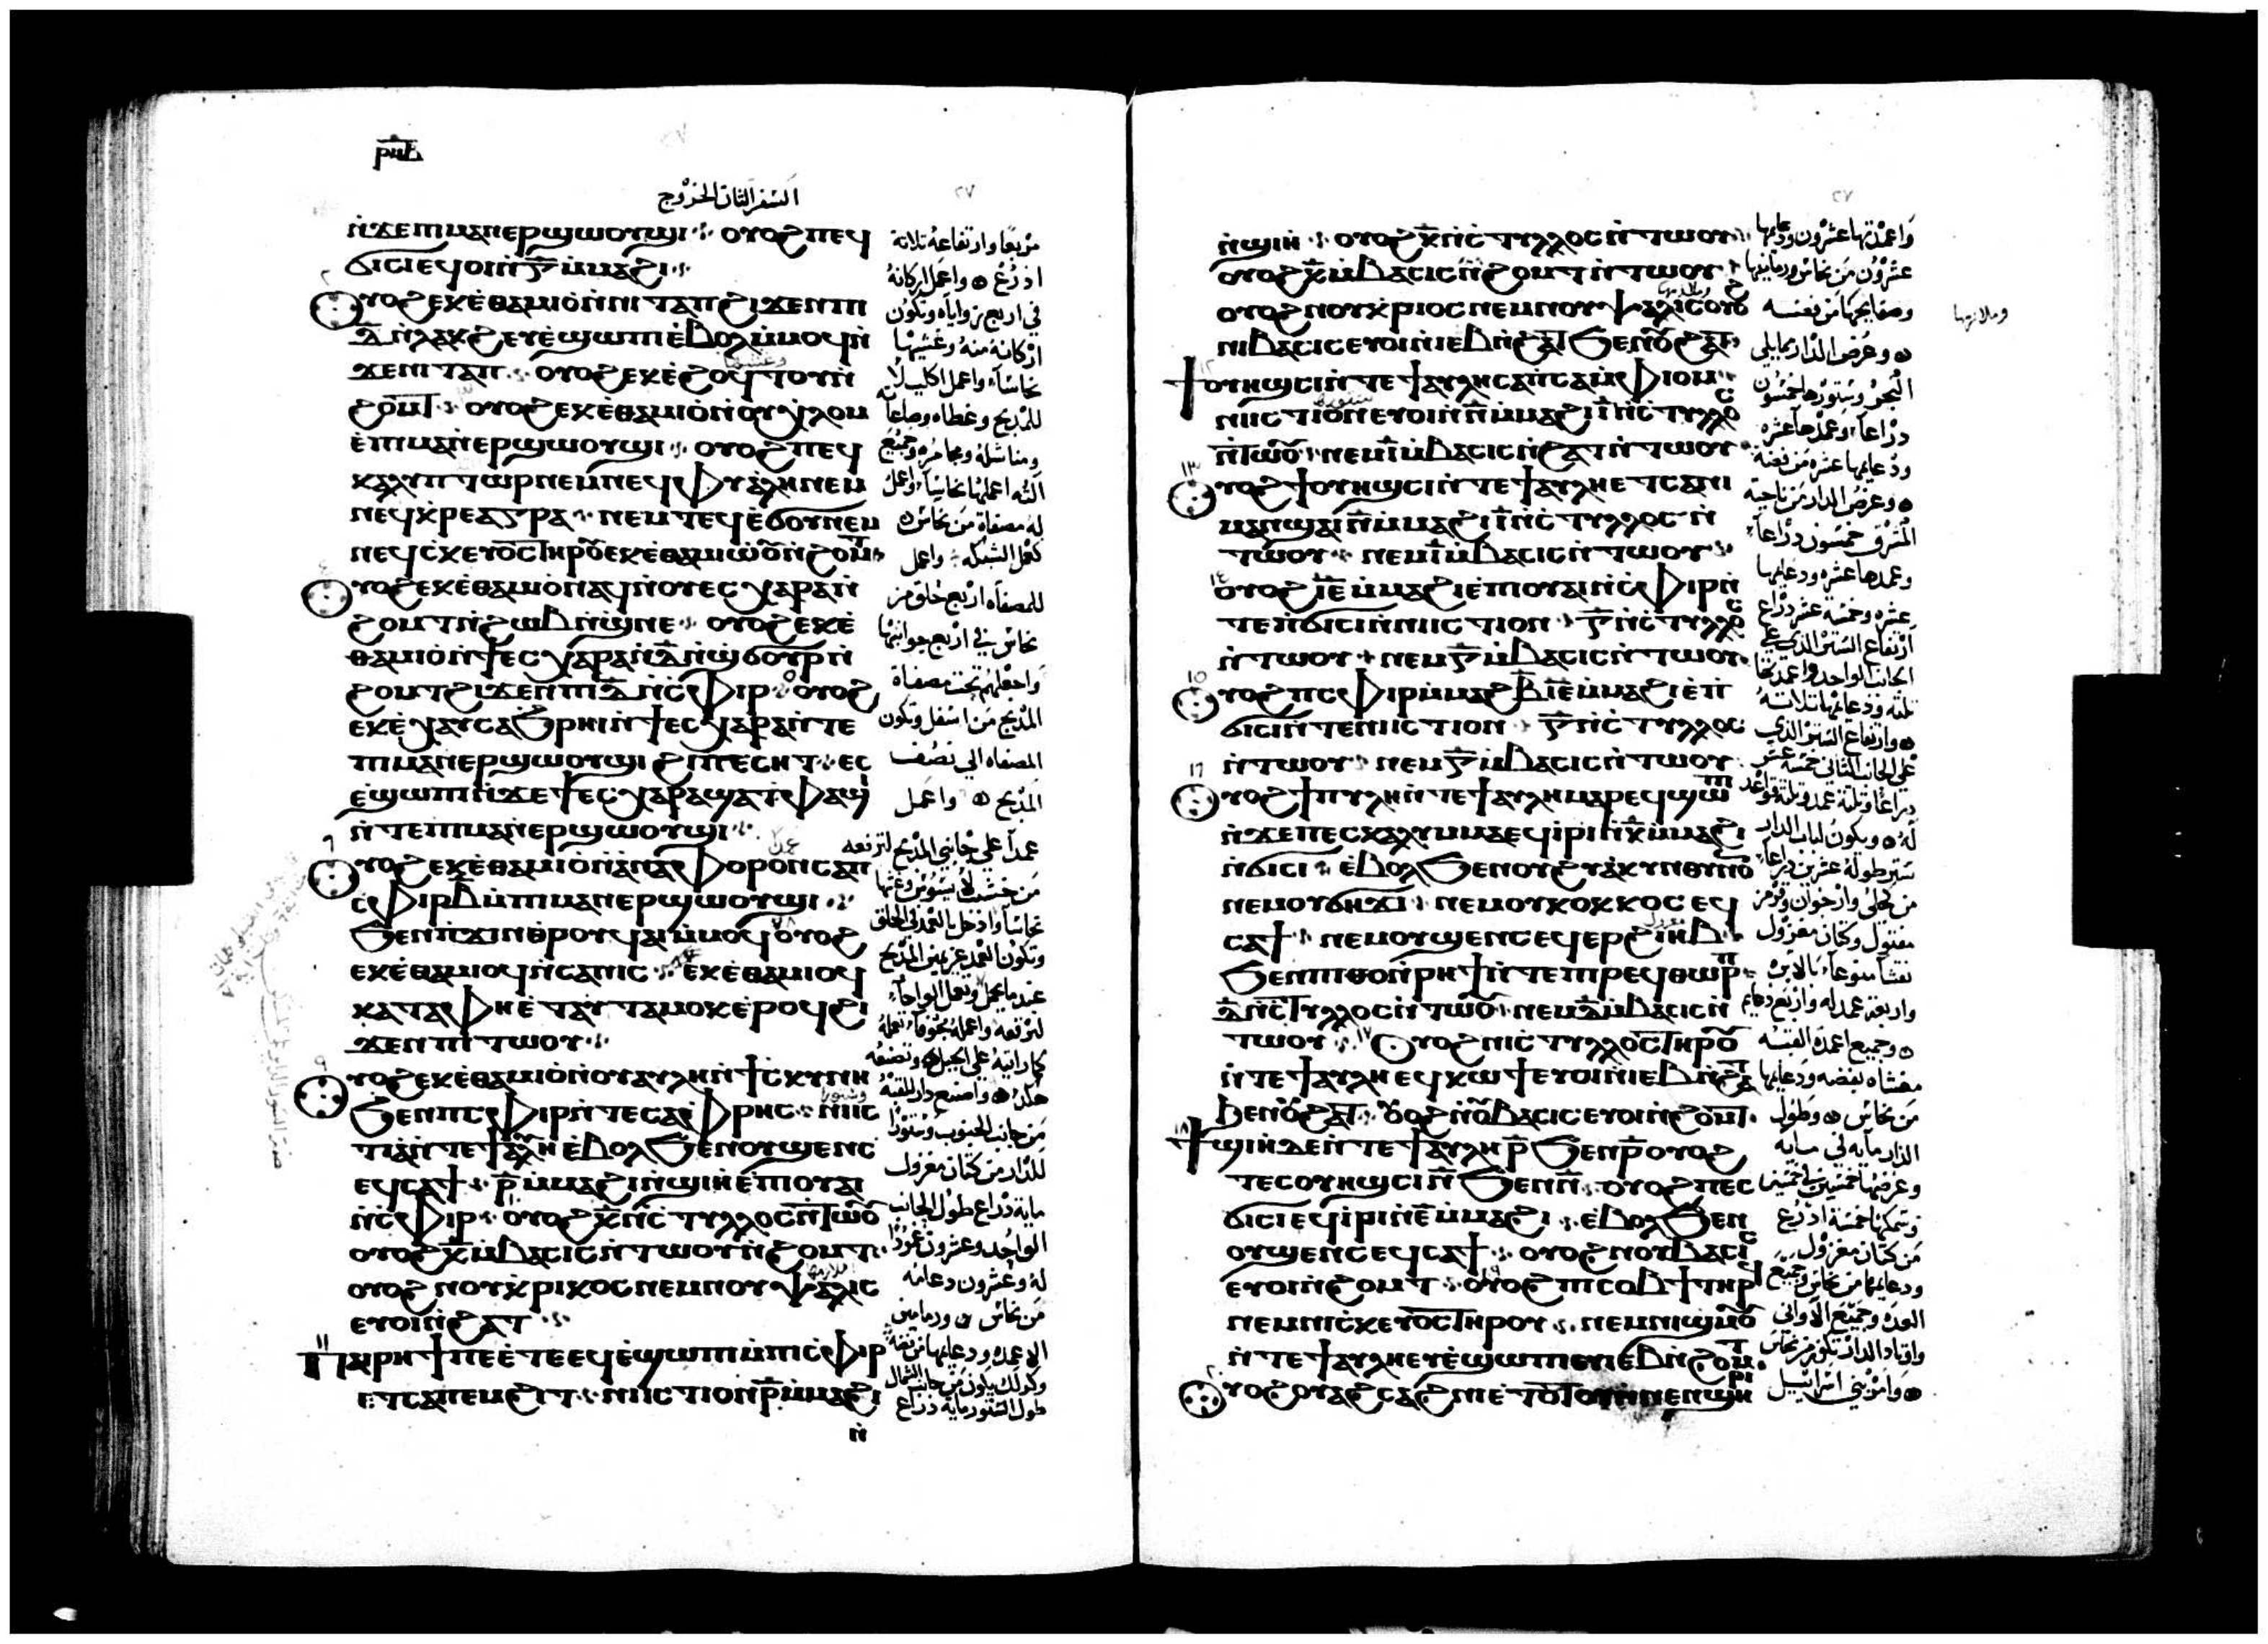 ⲣⲛⲃ
السفر الثانى الخروج
ⲛ̀ϫⲉⲡⲓⲙⲁⲛⲉⲣϣⲱⲟⲩϣⲓ ⲟⲩⲟϩ ⲡⲉϥ
ϭⲓⲥⲓ ⲉϥⲟⲓ ⲛ̀ⲅ̅ ⲙ̀ⲙⲁϩⲓ
ⲟⲩⲟϩ ⲉⲕⲉ̀ⲑⲁⲙⲓⲟ̀ ⲛ̀ⲛⲓⲧⲁⲡ ϩⲓϫⲉⲛ ⲡⲓ
ⲇ̅ ⲛ̀ⲗⲁⲕϩ ⲉⲩⲉ̀ϣⲱⲡⲓ ⲉ̀ⲃⲟⲗ ⲙ̀ⲙⲟϥ ⲛ̀
ϫⲉⲛⲓⲧⲁⲡ ⲟⲩⲟϩ ⲉⲕⲉ̀ϩⲟⲃⲥⲟⲩ ⲛ̀
ϩⲟⲙⲧ ⲟⲩⲟϩ ⲉⲕⲉ̀ⲑⲁⲙⲓⲟ̀ ⲛ̀ⲟⲩⲭ̀ⲗⲟⲙ
ⲉ̀ⲡⲓⲙⲁⲛ̀ⲉⲣϣⲱⲟⲩϣⲓ ⲟⲩⲟϩ ⲡⲉϥ
ⲕⲁⲗⲩⲡⲧⲱⲣ ⲛⲉⲙ ⲛⲉϥⲫⲩⲁⲗⲏ ⲛⲉⲙ
ⲛⲉϥⲕ̀ⲣⲉⲁⲅⲣⲁ ⲛⲉⲙ ⲧⲉϥⲉ̀ϭⲟⲩ ⲛⲉⲙ
ⲛⲉϥⲥ̀ⲕⲉⲩⲟⲥ ⲧⲏⲣⲟⲩ ⲉⲕⲉ̀ⲑⲁⲙⲓⲱⲟⲩ ⲛ̀ϩⲟⲙⲧ
ⲟⲩⲟϩ ⲉⲕⲉ̀ⲑⲁⲙⲓⲟ̀ ⲛⲁϥ ⲛ̀ⲟⲩⲉⲥⲭⲁⲣⲁ ⲛ̀
ϩⲟⲙⲧ ⲛ̀ϩⲱⲃ ⲛ̀ϣ̀ⲛⲉ ⲟⲩⲟϩ ⲉⲕⲉ̀
ⲑⲁⲙⲓⲟ̀ ⲛ̀ϯⲉⲥⲭⲁⲣⲁ ⲛ̀ⲇ̅ ⲛ̀ϣϭⲟⲩⲣ ⲛ̀
ϩⲟⲙⲧ ϩⲓϫⲉⲛ ⲡⲓⲇ̅ ⲛ̀ⲥ̀ⲫⲓⲣ ⲟⲩⲟϩ
ⲉⲕⲉ̀ⲭⲁⲩ ⲥⲁϧⲣⲏⲓ ⲛ̀ϯⲉⲥⲭⲁⲣⲁ ⲛ̀ⲧⲉ
ⲡⲓⲙⲁⲛⲉⲣϣⲱⲟⲩϣⲓ ϩⲓⲡⲉⲥⲏⲧ ⲉⲥ
ⲉ̀ϣⲱⲡⲓ ⲛ̀ϫⲉ ϯⲉⲥⲭⲁⲣⲁ ϣⲁ ⲧ̀ⲫⲁϣⲓ
ⲛ̀ⲧⲉ ⲡⲓⲙⲁⲛ̀ⲉⲣϣⲱⲟⲩϣⲓ
ⲟⲩⲟϩ ⲉⲕⲉ̀ⲑⲁⲙⲓⲟ̀ ⲛ̀ϩⲁⲛⲁⲛⲁⲫⲟⲣⲟⲛ ⲥⲁⲡ
ⲥ̀ⲫⲓⲣ ⲃ̅ ⲙ̀ⲡⲓⲙⲁⲛⲉⲣϣⲱⲟⲩϣⲓ
ϧⲉⲛ ⲡϫⲓⲛⲑⲣⲟⲩϥⲁⲓ ⲙ̀ⲙⲟϥ ⲟⲩⲟϩ
ⲉⲕⲉ̀ⲑⲁⲙⲓⲟϥ ⲛ̀ⲥⲁⲛⲓⲥ ⲉⲕⲉ̀ⲑⲁⲙⲓⲟϥ
ⲕⲁⲧⲁ ⲫⲏ ⲉ̀ⲧⲁⲩⲧⲁⲙⲟⲕ ⲉ̀ⲣⲟϥ ϩⲓ
ϫⲉⲛ ⲡⲓⲧⲱⲟⲩ
ⲟⲩⲟϩ ⲉⲕⲉ̀ⲑⲁⲙⲓⲟ̀ ⲛ̀ⲟⲩⲁⲩⲗⲏ ⲛ̀ϯⲥⲕⲩⲛⲏ
ϧⲉⲛ ⲡⲥ̀ⲫⲓⲣ ⲛ̀ⲧⲉ ⲥⲁⲫⲣⲏⲥ ⲛⲓⲓⲥ
ⲧⲓⲁ ⲛ̀ⲧⲉ ϯⲁⲩⲗⲏ ⲉ̀ⲃⲟⲗ ϧⲉⲛ ⲟⲩϣⲉⲛⲥ
ⲉϥⲥⲁϯ ⲣ̅ ⲙ̀ⲙⲁϩⲓ ⲛ̀ϣⲓⲏ ⲉ̀ⲡⲓⲟⲩⲁⲓ
ⲛ̀ⲥ̀ⲫⲓⲣ ⲟⲩⲟϩ ⲕ̅ ⲛ̀ⲥ̀ⲧⲩⲗⲗⲟⲥ ⲛ̀ⲧⲱⲟⲩ
ⲟⲩⲟϩ ⲕ̅ ⲙ̀ⲃⲁⲥⲓⲥ ⲛ̀ⲧⲱⲟⲩ ⲛ̀ϩⲟⲙⲧ
ⲟⲩⲟϩ ⲛⲟⲩⲕ̀ⲣⲓⲕⲟⲥ ⲛⲉⲙ ⲛⲟⲩⲯⲁⲗⲓⲥ
ⲉⲩⲟⲓ ⲛ̀ϩⲁⲧ
ⲡⲁⲓⲣⲏϯ ⲡⲉ ⲉ̀ⲧⲉϥⲉ̀ϣⲱⲡⲓ ⲙ̀ⲡⲓⲥ̀ⲫⲓⲣ
ⲉⲧⲥⲁⲡⲉⲙϩⲓⲧ ⲛⲓⲓⲥⲧⲓⲟⲛ ⲣ̅ ⲙ̀ⲙⲁϩⲓ
ⲛ̀
مربعا وارتفاعه ثلاثة
اذرع واعمل اركانه
في اربع زواياه وتكون
اركانه منه وغشيها
نحاسا واعمل اكليلا
للمذبح وغطاه وصاعا
ومناشله ومجامره وجميع
آلته اعملها نحاسا واعمل
له مصفاة من نحاس
كعمل الشبكه واعمل
للمصفاه اربع حلق من
نحاس في اربع جوانبها
واجعلهم تحت مصفاة
المذبح من اسفل وتكون
المصفاه الى نصف
المذبح واعمل
عمدا على جانبي المذبح لترفعه
من خشب لا يسوس وغشها
نحاسا وادخل العمد في الحلق
وتكون العمد عن جنبى المذبح
عندما يحمل وتعمل الواحا
لترفعه واعمله مجوفا تعمله
كما رايته على الجبل وتصنعه
هكذا واصنع دار للقبة
من جانب الجنوب وستورا
للدار من كتان مغزول
مايه ذراع طول الجانب
الواحد وعشرون عمودا
له وعشرون دعامه
من نحاس
الاعمده ودعايمها من فضه
وكذلك يكون من جانب الشمال
طول الستور مايه ذراع
ⲛ̀ϣⲓⲏ ⲟⲩⲟϩ ⲕ̅ ⲛ̀ⲥ̀ⲧⲩⲗⲗⲟⲥ ⲛ̀ⲧⲱⲟⲩ
ⲟⲩⲟϩ ⲕ̅ ⲙ̀ⲃⲁⲥⲓⲥ ⲛ̀ϩⲟⲙⲧ ⲛ̀ⲧⲱⲟⲩ
ⲟⲩⲟϩ ⲛⲟⲩⲕ̀ⲣⲓⲟⲥ ⲛⲉⲙ ⲛⲟⲩⲯⲁⲗⲓⲥ ⲟⲩⲟϩ
ⲛⲓⲃⲁⲥⲓⲥ ⲉⲩⲟⲓ ⲛ̀ⲓⲉⲃ ⲛ̀ϩⲁⲧ ϧⲉⲛ ⲟⲩϩⲁⲧ
ϯⲟⲩⲏϣⲥⲓ ⲛ̀ⲧⲉ ϯⲁⲩⲗⲏ ⲥⲁⲡⲥⲁ ⲙ̀ⲫⲓⲟⲙ
ⲛⲓⲓⲥⲧⲓⲟⲛ ⲉⲩⲟⲓ ⲛ̀ⲛ̅ ⲙ̀ⲙⲁϩⲓ ⲓ̅ ⲛ̀ⲥ̀ⲧⲩⲗⲗⲟⲥ
ⲛ̀ⲧⲱⲟⲩ ⲛⲉⲙ ⲓ̅ ⲙ̀ⲃⲁⲥⲓⲥ ⲛ̀ϩⲁⲧ ⲛ̀ⲧⲱⲟⲩ
ⲟⲩⲟϩ ϯⲟⲩⲏϣⲥⲓ ⲛ̀ⲧⲉ ϯⲁⲩⲗⲏ ⲉⲧⲥⲁⲛⲓ
ⲙⲁⲛϣⲁⲓ ⲛ̅ ⲙ̀ⲙⲁϩⲓ ⲓ̅ ⲛ̀ⲥ̀ⲧⲩⲗⲗⲟⲥ ⲛ̀
ⲧⲱⲟⲩ ⲛⲉⲙ ⲓ̅ ⲙ̀ⲃⲁⲥⲓⲥ ⲛ̀ⲧⲱⲟⲩ
ⲟⲩⲟϩ ⲓⲉ̅ ⲙ̀ⲙⲁϩⲓ ⲉ̀ⲡⲓⲟⲩⲁⲓ ⲛ̀ⲥ̀ⲫⲓⲣ ⲛ̀
ⲧⲉ ⲛ̀ϭⲓⲥⲓ ⲛ̀ⲛⲓⲓⲥⲧⲓⲟⲛ ⲅ̅ ⲛ̀ⲥ̀ⲧⲩⲗⲗⲟⲥ
ⲛ̀ⲧⲱⲟⲩ ⲛⲉⲙ ⲅ̅ ⲙ̀ⲃⲁⲥⲓⲥ ⲛ̀ⲧⲱⲟⲩ
ⲟⲩⲟϩ ⲡⲥ̀ⲫⲓⲣ ⲙ̀ⲙⲁϩⲃ̅ ⲓⲉ̅ ⲙ̀ⲙⲁϩⲓ ⲉ̀ⲡ
ϭⲓⲥⲓ ⲛ̀ⲧⲉ ⲛⲓⲓⲥⲧⲓⲟⲛ ⲅ̅ ⲛ̀ⲥ̀ⲧⲩⲗⲗⲟⲥ
ⲛ̀ⲧⲱⲟⲩ ⲛⲉⲙ ⲅ̅ ⲙ̀ⲃⲁⲥⲓⲥ ⲛ̀ⲧⲱⲟⲩ
ⲟⲩⲟϩ ϯⲡⲩⲗⲏ ⲛ̀ⲧⲉ ϯⲁⲩⲗⲏ ⲙⲁⲣⲉϥϣⲱⲡⲓ
ⲛ̀ϫⲉ ⲡⲉⲥⲕⲁⲗⲩⲙⲙⲁ ⲉϥⲓ̀ⲣⲓ ⲛ̀ⲕ̅ ⲙ̀ⲙⲁϩⲓ
ⲛ̀ϭⲓⲥⲓ ⲉ̀ⲃⲟⲗ ϧⲉⲛ ⲟⲩϩⲩⲁⲕⲩⲛⲑⲓⲛⲟⲛ
ⲛⲉⲙ ⲟⲩϭⲏϫⲓ ⲛⲉⲙ ⲟⲩⲕⲟⲕⲕⲟⲥ ⲉϥ
ⲥⲁϯ ⲛⲉⲙ ⲟⲩϣⲉⲛⲥ ⲉϥⲉⲣϩⲓⲏⲃ
ϧⲉⲛ ⲡⲓⲑⲟ ⲛ̀ⲣⲏϯ ⲛ̀ⲧⲉ ⲡⲓⲣⲉϥⲑⲱⲣⲡ
ⲇ̅ ⲛ̀ⲥ̀ⲧⲩⲗⲗⲟⲥ ⲛ̀ⲧⲱⲟⲩ ⲛⲉⲙ ⲇ̅ ⲙ̀ⲃⲁⲥⲓⲥ ⲛ̀
ⲧⲱⲟⲩ ⲟⲩⲟϩ ⲛⲓⲥ̀ⲧⲩⲗⲗⲟⲥ ⲧⲏⲣⲟⲩ
ⲛ̀ⲧⲉ ϯⲁⲩⲗⲏ ⲉϥⲕⲱϯ ⲉⲩⲟⲓ ⲛ̀ⲓⲉⲃ ⲛ̀ϩⲁⲧ
ϧⲉⲛ ⲟⲩϩⲁⲧ ⲟⲩⲟϩ ⲛⲟⲩⲃⲁⲥⲓⲥ ⲉⲩⲟⲓ ⲛ̀ϩⲟⲙⲧ
ϯϣⲓⲏ ⲇⲉ ⲛ̀ⲧⲉ ϯⲁⲩⲗⲏ ⲣ̅ ϧⲉⲛ ⲣ̅ ⲟⲩⲟϩ
ⲧⲉⲥⲟⲩⲏϣⲥⲓ ⲛ̅ ϧⲉⲛ ⲛ̅ ⲟⲩⲟϩ ⲡⲉⲥ
ϭⲓⲥⲓ ⲉϥⲓ̀ⲣⲓ ⲛ̀ⲉ̅ ⲙ̀ⲙⲁϩⲓ ⲉ̀ⲃⲟⲗ ϧⲉⲛ
ⲟⲩϣⲉⲛⲥ ⲉϥⲥⲁϯ ⲟⲩⲟϩ ⲛⲟⲩⲃⲁⲥⲓⲥ
ⲉⲩⲟⲓ ⲛ̀ϩⲟⲙⲧ ⲟⲩⲟϩ ⲡⲓⲥⲟⲃϯ ⲧⲏⲣϥ
ⲛⲉⲙ ⲛⲓⲥ̀ⲕⲉⲩⲟⲥ ⲧⲏⲣⲟⲩ ⲛⲉⲙ ⲛⲓϣⲙⲟⲩ
ⲛ̀ⲧⲉ ϯⲁⲩⲗⲏ ⲉⲩⲉ̀ϣⲱⲡⲓ ⲉⲩⲓⲉⲃ ⲛ̀ϩⲟⲙⲧ
ⲟⲩⲟϩ ⲟⲩⲁϩⲥⲁϩⲛⲓ ⲉ̀ⲧⲟⲧⲟⲩ ⲛ̀ⲛⲉⲛϣⲏⲣⲓ
واعمدتها عشرون ودعايمها
عشرون من نحاس
وصفايحها من فضه
وعرض الدار مما يلي
البحر وستورها خمسون
ذراعا وعمدها عشره
ودعايمها عشره من فضه
وعرض الدار من ناحية
المشرق خمسون ذراعا
وعمدها عشره ودعايمها
عشره وخمسه عشر ذراع
ارتفاع الستر الذي على
الجانب الواحد واعمدتها
ثلثه ودعايمها ثلاثه
وارتفاع الستر الذي
على الجانب الثاني خمسه عشر
ذراعا وثلثه عمد وثلثه قواعد
له ويكون لباب الدار
ستر طوله عشرين ذراعا
من كحلي وارجوان وقرمز
مفتول وكتان مغزول
نقشا منوعا بالابره
واربعة عمد له واربع دعايم
وجميع اعمدة القبه
مغشاه بفضه ودعايمها
من نحاس وطول
الدار مايه في مايه
وعرضها خمسين في خمسين
وسمكها خمسة اذرع
من كتان مغزول
ودعايمها من نحاس وجميع
العده وجميع الاواني
واوتاد الدار تكون من نحاس
وامر بني اسراييل